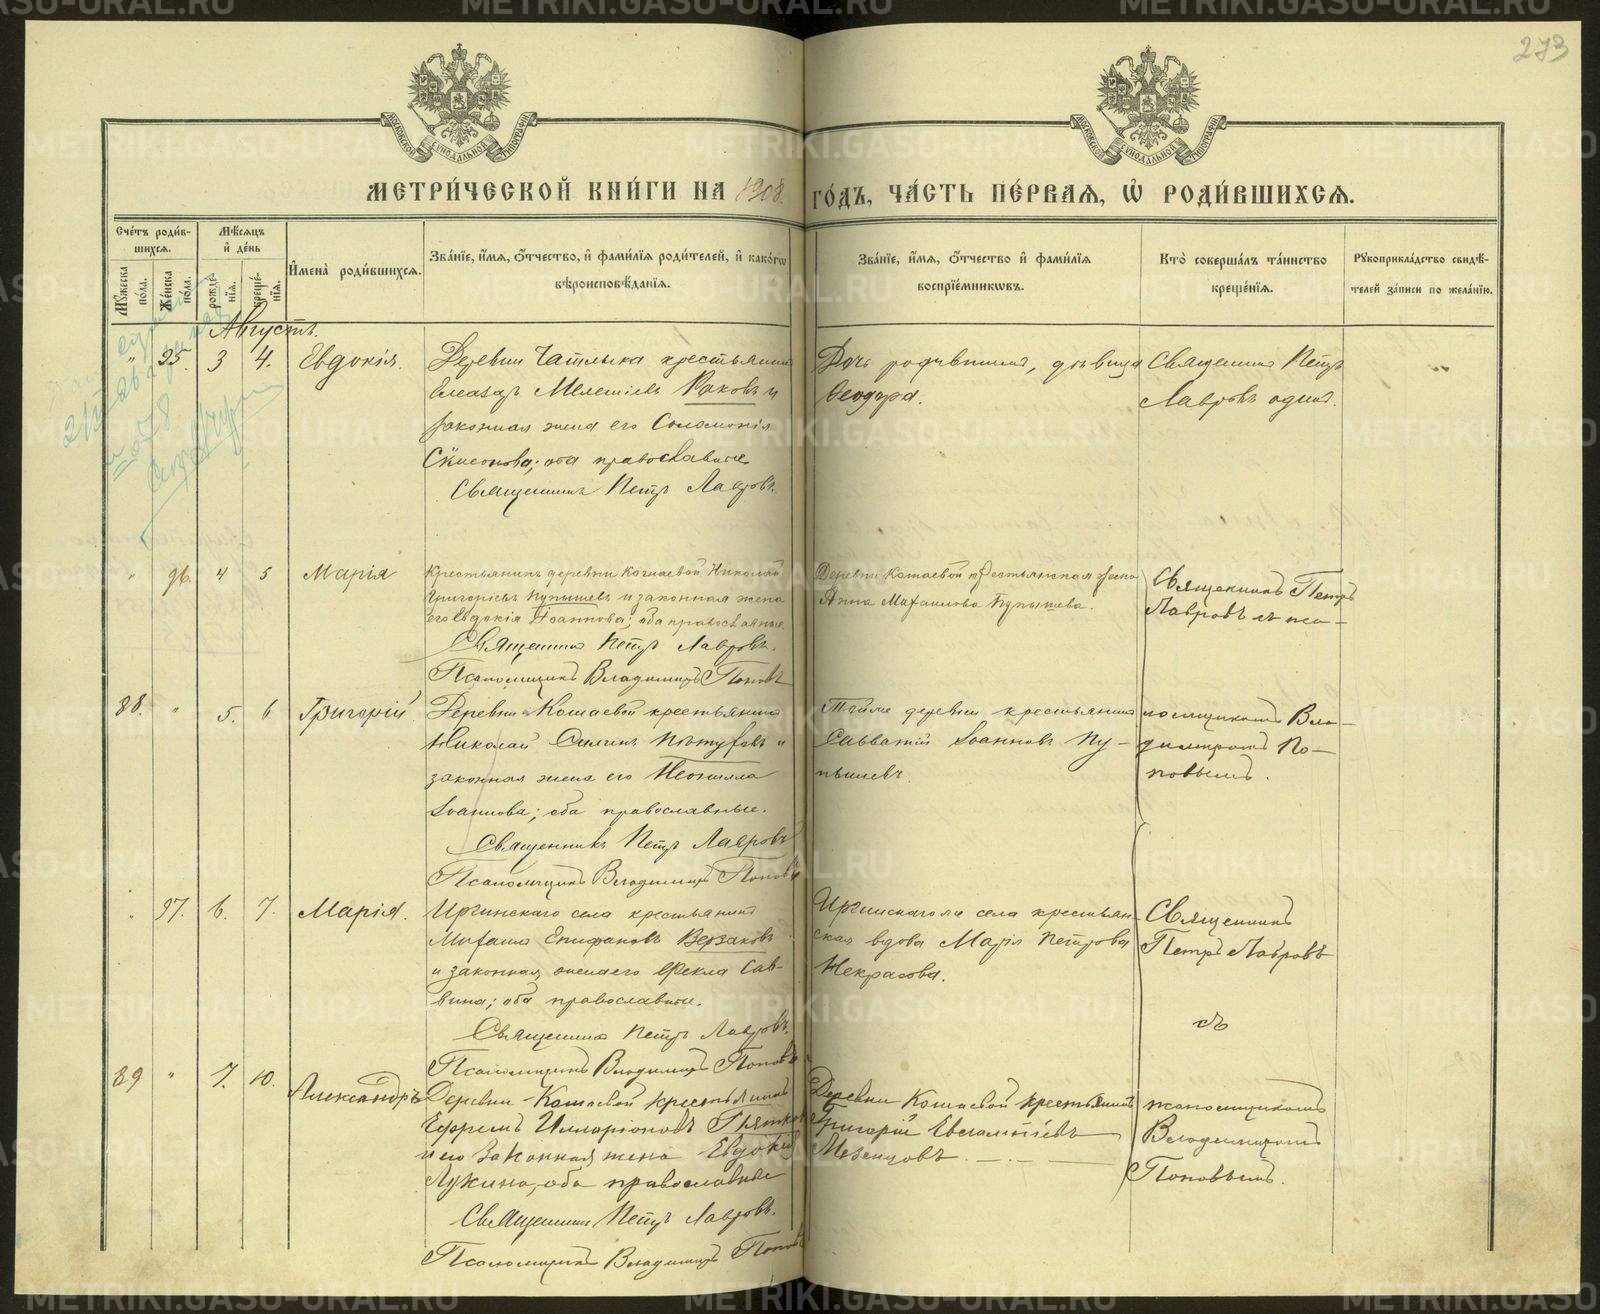 273
МОСКОВСКОЙ СѴНОДАЛЬНОЙ ТИПОГРАФІИ
МОСКОВСКОЙ СѴНОДАЛЬНОЙ ТИПОГРАФІИ
МЕТРИ́ЧЕСКОЙ КНИ́ГИ НА 1908. ГО́ДЪ, ЧА́СТЬ ПЕ́РВАЯ, Ѡ҆ РОДИ́ВШИХСЯ.
Сче́тъ роди́вшихся.
Мꙋ́жеска по́ла.
Же́нска по́ла.
Мѣ́сяцъ и҆ де́нь
рожде́нїя.
креще́нїя.
И҆мена̀ роди́вшихся.
Зва́нїе, и҆́мя, ѻ҆́тчество, и҆ фами́лїя роди́телей, и҆ како́гѡ
вѣроисповѣ́данїя.
Зва́нїе, и҆́мя, ѻ҆́тчество и҆ фами́лїя
воспрїе́мникѡвъ.
Кто̀ соверша́лъ та́инство
креще́нїя.
Рꙋкоприкла́дство свидѣ́-
телей за́писи по жела́нїю.
Августъ.
" 95. 3 4. Евдокія.
Деревни Чатлыка крестьянинъ
Елеазаръ Мелетіевъ Раковъ и
законная жена его Соломонія
оба православные
Священникъ Петръ Лавровъ.
Дочь родившихъ, дѣвица
Ѳеодора.
Священникъ Петръ
Лавровъ одинъ.
" 96. 4 5 Марія
Крестьянинъ деревни Кошаевой Николай
Григорьевъ Пупышевъ и законная жена
его Евдокія Іоаннова; оба православные.
Священникъ Петръ Лавровъ.
Псаломщикъ Владимиръ Поповъ
Деревни Кошаевой крестьянская жена
Анна Михаилова Пупышева.
Священникъ Петръ
Лавровъ съ пса-
88. " 5. 6 Григорій.
Деревни Кошаевой крестьянинъ
Николай Силинъ Пѣтуховъ и
законная жена его Неонилла
Іоаннова; оба православные.
Священникъ Петръ Лавровъ
Псаломщикъ Владимиръ Поповъ
Той же деревни крестьянинъ
Савватій Іоанновъ Пу-
пышевъ.
ломщикомъ Вла-
димиромъ По-
повымъ.
" 97. 6. 7. Марія.
Иргинскаго села крестьянинъ
Михаилъ Епифановъ Верзаковъ
и законная жена его Ѳекла Сав-
вина; оба православные.
Священникъ Петръ Лавровъ.
Псаломщикъ Владимиръ Поповъ
Иргинскаго села крестьян-
ская вдова Марія Петрова
Некрасова.
Священникъ
Петръ Лавровъ
съ
89 " 7. 10. Александръ
Деревни Кошаевой крестьянинъ
Ефремъ Илларіоновъ
и его законная жена Евдокія
Лукина, оба православные
Священникъ Петръ Лавровъ.
Псаломщикъ Владимиръ Поповъ
Деревни Кошаевой крестьянинъ
Григорій Евгамліевъ
Мезенцовъ.
псаломщикомъ
Владимиромъ
Поповымъ.
METRIKI.GASO-URAL.RU